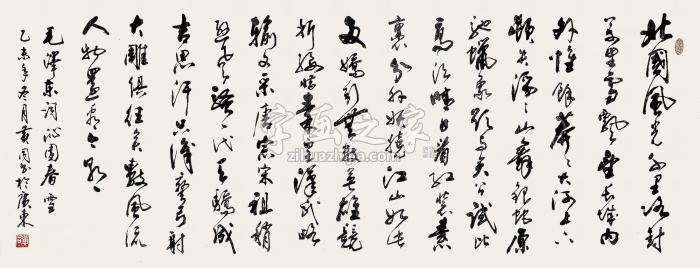 北國風光千里冰封
萬里雪飄望長城內
外惟餘莽々大河上下
頓失滔々山舞銀蛇原
馳蠟象欲與天公試比
高須晴日看紅裝素
裹分外妖嬈江山如此
多嬌引無數英雄競
折腰惜秦皇漢武略
輸文采唐宗宋祖稍
遜風騷一代天驕成
吉思汗只識彎弓射
大雕俱往矣數風流
人物還看今朝
毛澤東詞沁園春雪
乙未年冬月黄书於廣東
字画之家
zihuazhijia.com